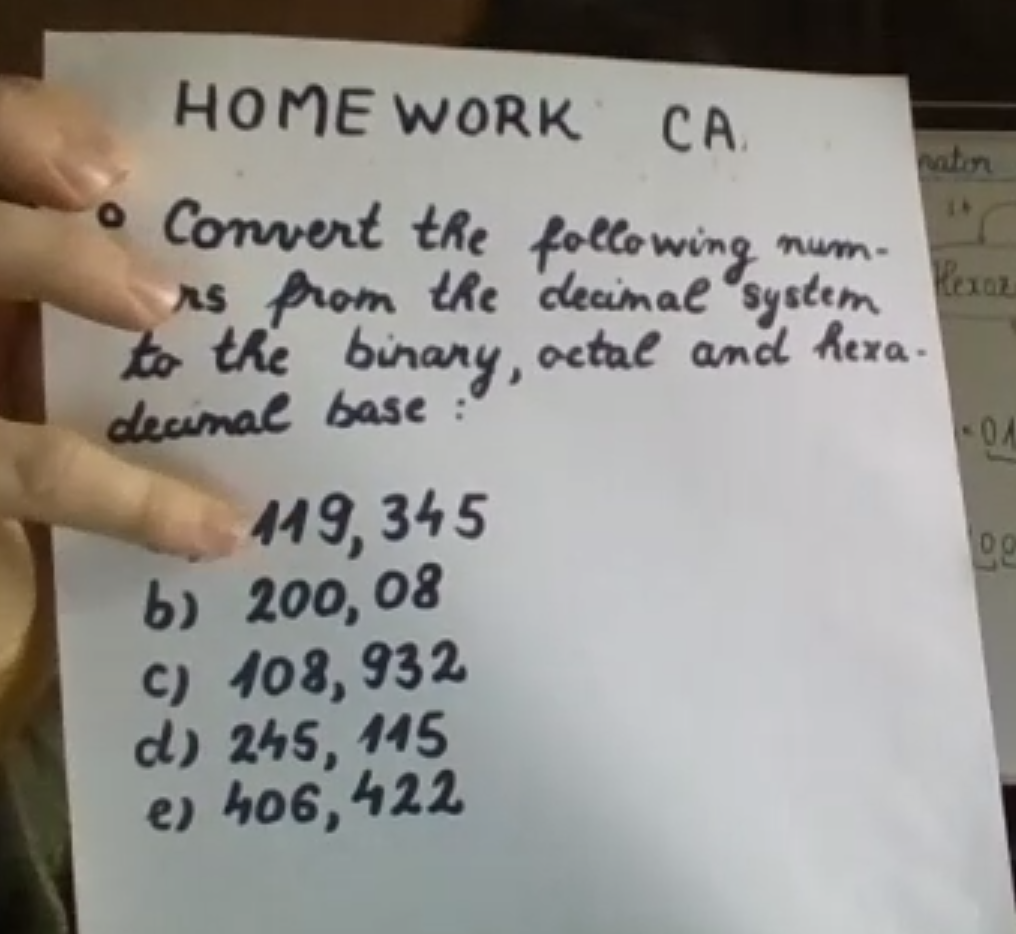 HOMEWORK CA.
Convert the following num-
rs from the decimal system
to the binary, octal and hexa-
decimal base:
119,345
b) 200,08
c) 108,932
d) 245,115
e) 406,422